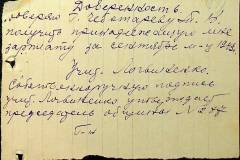 Доверенность.
доверяю Г. Чеботареву П. В.
получить принадлежащую мне
зарплату за сентябрь м-ц
Учит. Логвиненко.
Собственноручную подпись
учит. Логвиненко утверждает
председатель общины №